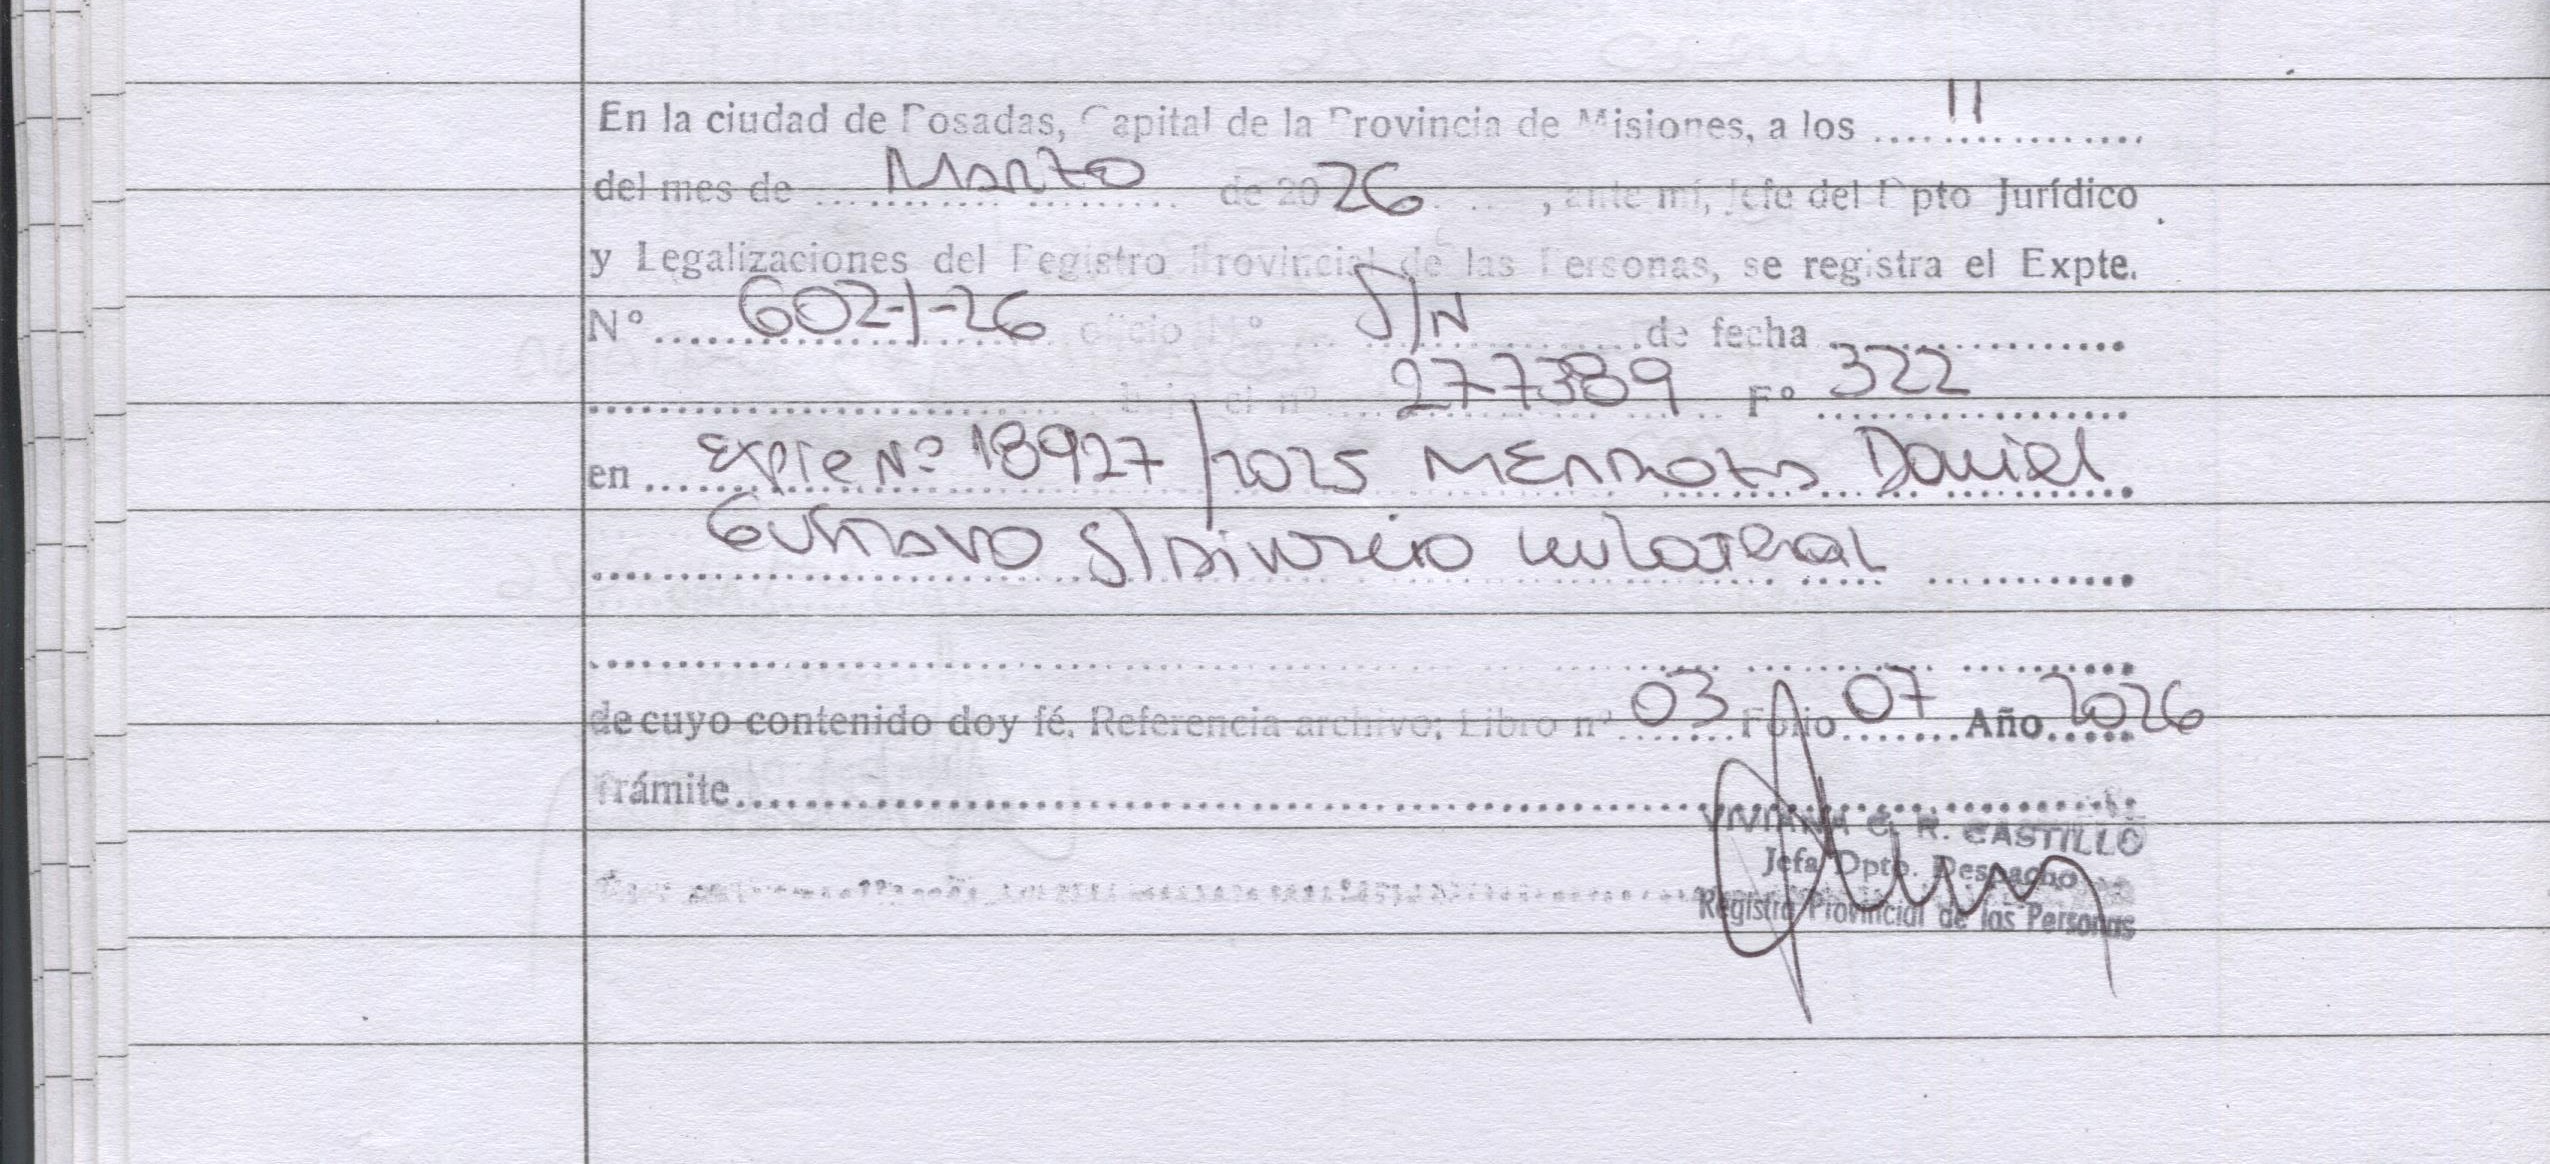 En la ciudad de Posadas, Capital de la Provincia de Misiones, a los .... 11 ....
del mes de .... Marzo .... de 2026 , ante mí, Jefe del Dpto Jurídico
y Legalizaciones del Registro Provincial de las Personas, se registra el Expte.
Nº .... 602-1-26 oficio Nº .... S/N .... de fecha ....
.... bajo el nº .... 277389 Fº 322
en .... Expte Nº 18927/2025 Mendoza Daniel
Gustavo S/Divorcio unilateral
de cuyo contenido doy fé. Referencia archivo: Libro nº 03 Folio 07 Año 2026
Trámite....
VIVIANA C. R. CASTILLO
Jefa Dpto. Despacho
Registro Provincial de las Personas